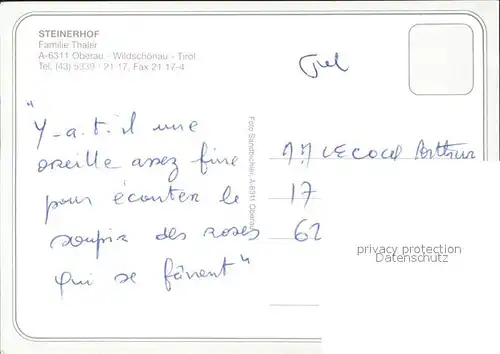 STEINERHOF
Familie Thaler
A-6311 Oberau - Wildschönau - Tirol
Tel. (43) 5339 · 21 17, Fax 21 17-4
"Y-a.t.il une
oreille assez fine
pour écouter le
soupir des roses
qui se fânent"
Foto Sandbichler, A-6311 Oberau
LECOCQ Arthur
17
62
privacy protection
Datenschutz